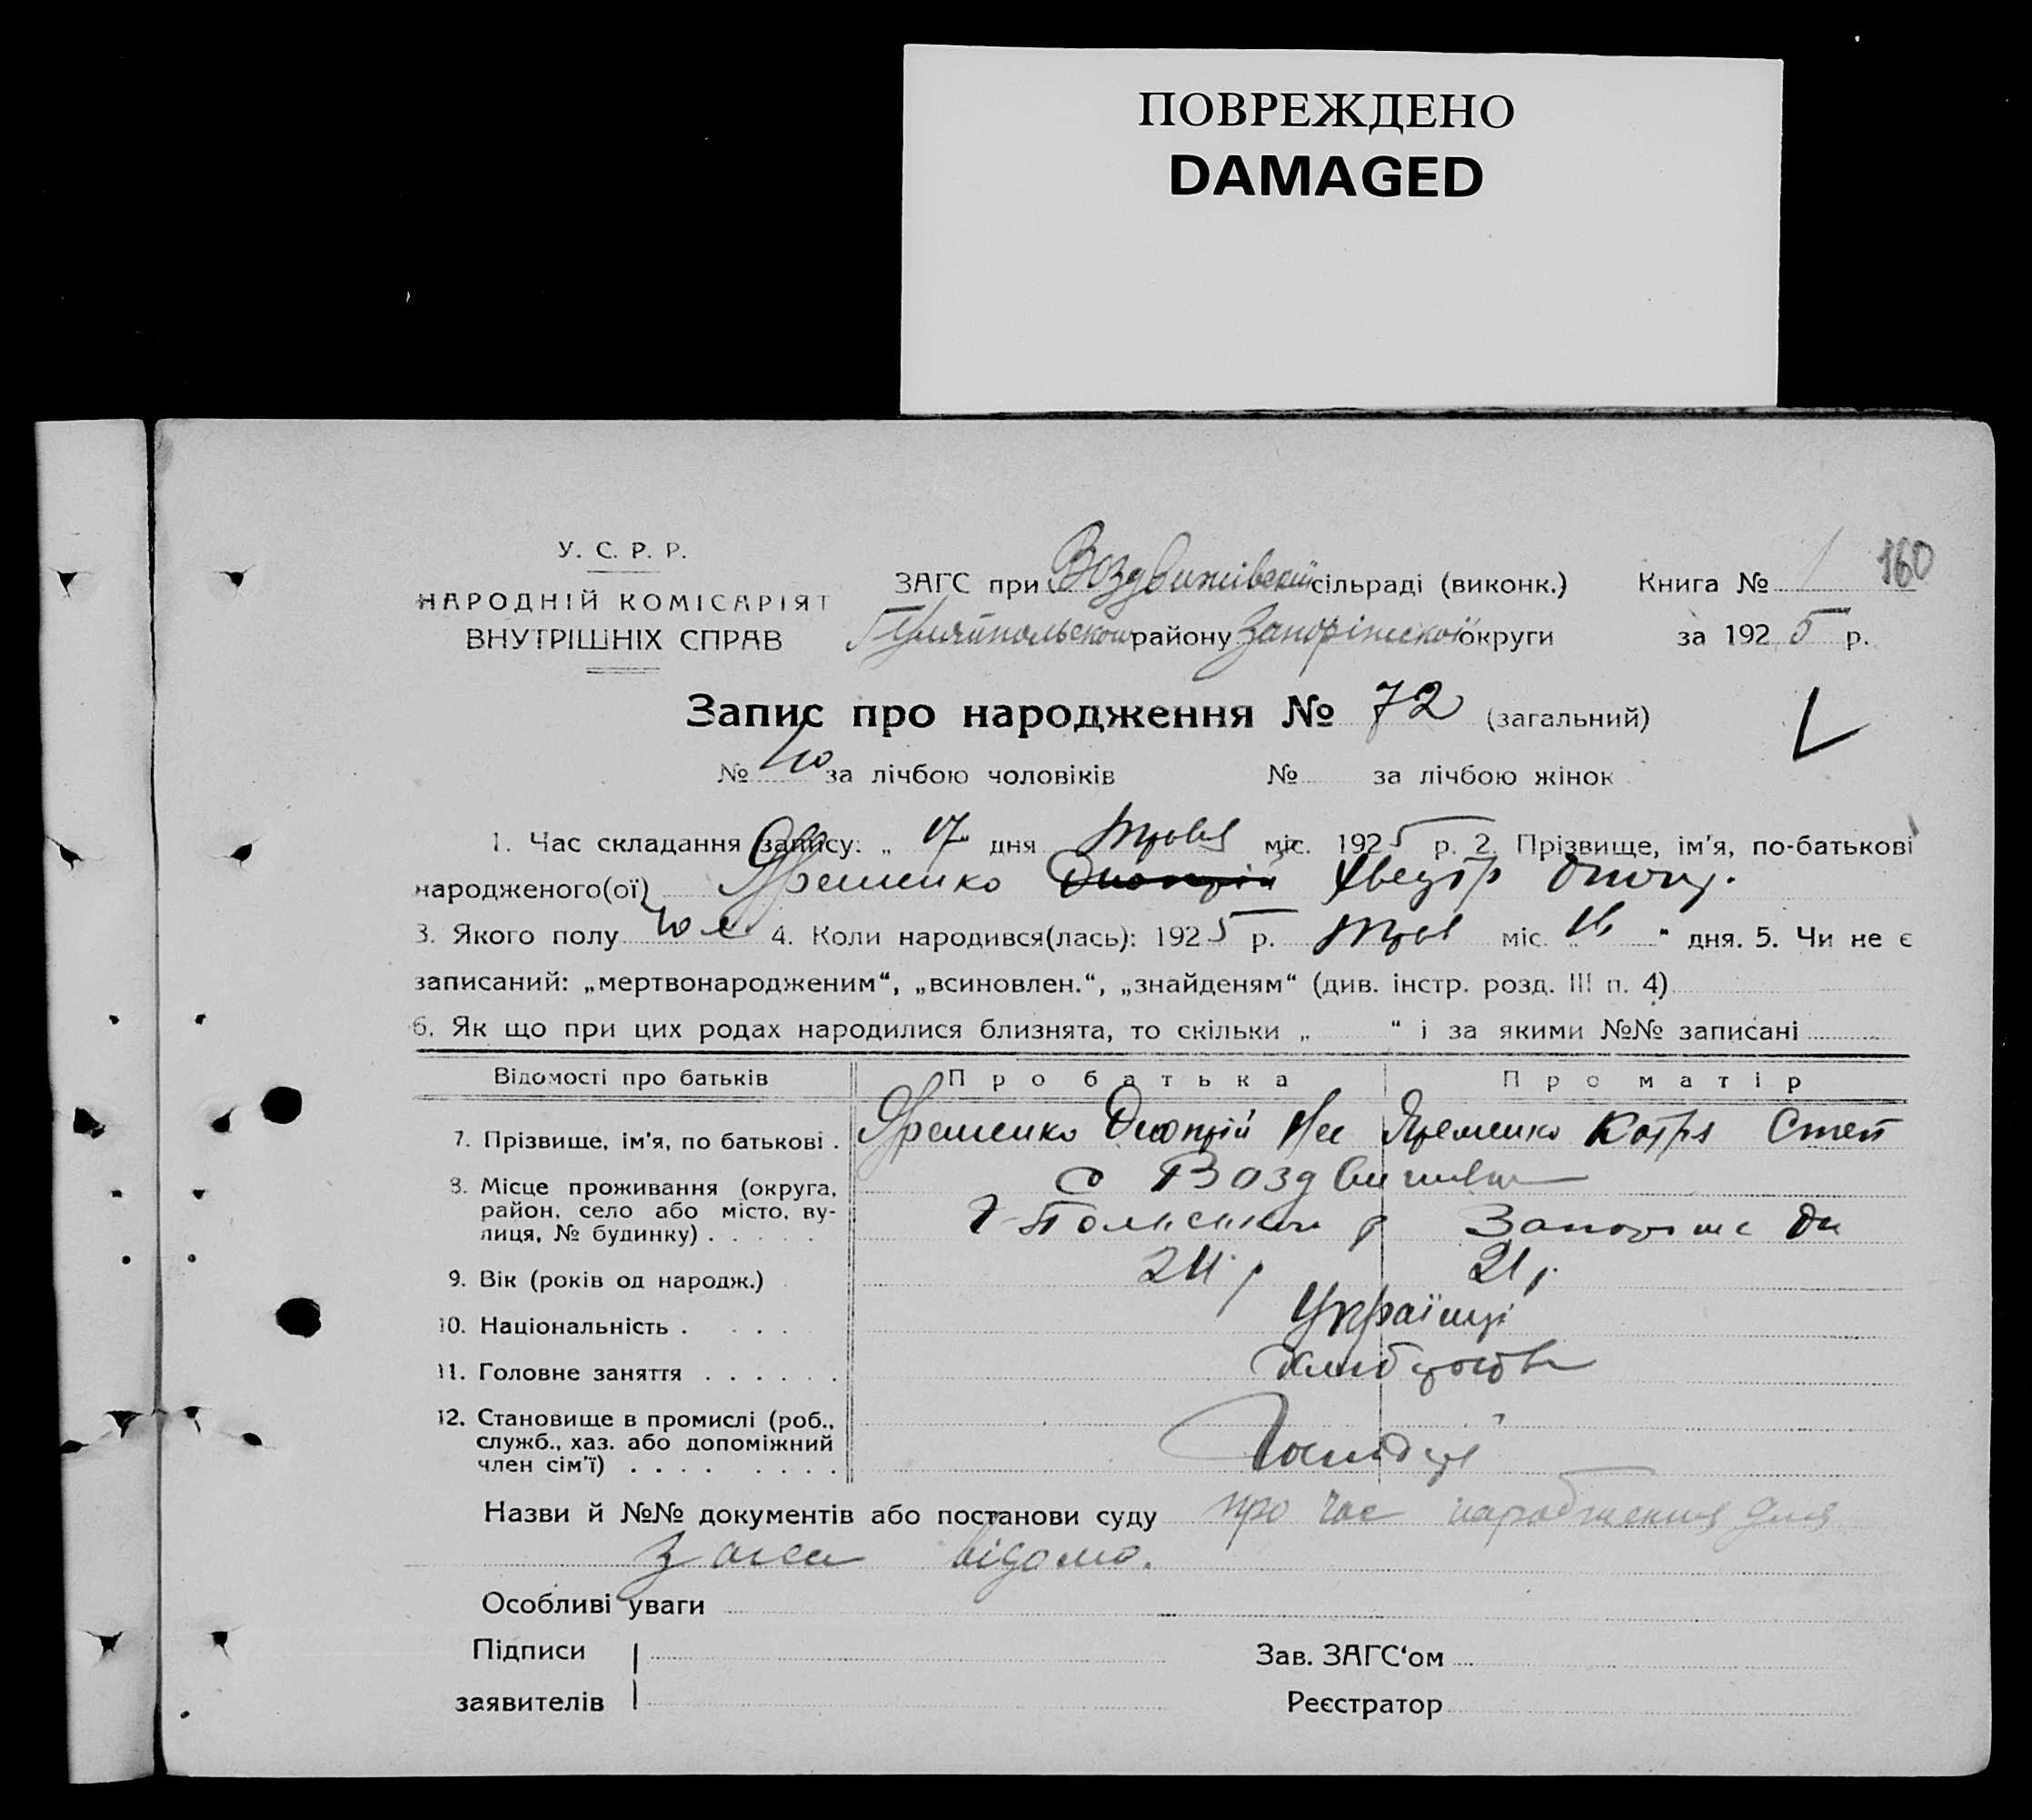 ПОВРЕЖДЕНО
DAMAGED
У. С. Р. Р.
НАРОДНІЙ КОМІСАРІЯТ
ВНУТРІШНІХ СПРАВ
ЗАГС при Воздвижівській сільраді (виконк.) Книга № 1 160
Гуляйпольского району Запоріжскої округи за 1925 р.
Запис про народження № 72 (загальний)
№ 40 за лічбою чоловіків № за лічбою жінок
1. Час складання запису: „ 17 дня травя міс. 1925 р. 2. Прізвище, ім'я, по-батькові
народженого(ої) Яременко Хведір
3. Якого полу чол. 4. Коли народився(лась): 1925 р. трав міс. „ 16 “ дня. 5. Чи не є
записаний: „мертвонародженим“, „всиновлен.“, „знайденям“ (див. інстр. розд. III п. 4)
6. Як що при цих родах народилися близнята, то скільки „ “ і за якими №№ записані
Відомості про батьків Про батька Про матір
7. Прізвище, ім'я, по батькові . Яременко Яременко Катря Степ
8. Місце проживання (округа,
район, село або місто, ву-
лиця, № будинку) . . . . .
с Воздвижівка
9. Вік (років од народж.) 24 р 21 р.
10. Національність . . . . Українці
11. Головне заняття . . . . . . Хліборобств
12. Становище в промислі (роб.,
служб., хаз. або допоміжний
член сім'ї) . . . . . . . .
Господар
Назви й №№ документів або постанови суду про час народження для
загса відомо.
Особливі уваги
Підписи
заявителів
Зав. ЗАГС'ом
Реєстратор